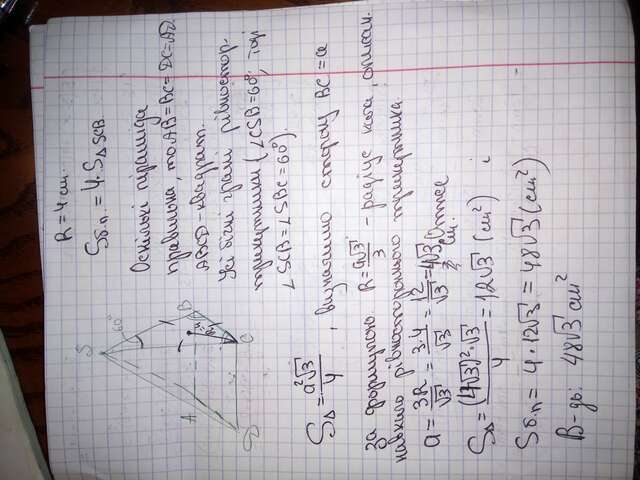 R = 4 см.
Sб.п. = 4·S△SCB
Оскількі піраміда
правильна, то AB=BC=DC=AD.
ABCD - квадрат.
Усі бічні грані рівностор.
трикутники (∠CSB=60°, тоді
∠SCB=∠SBC=60°).
S 60° A B C D
S△ = a²√3/4, визначимо сторону BC = a
за формулою R = a√3/3 - радіус кола, описан.
навколо рівностороннього трикутника.
a = 3R/√3 = 3·4/√3 = 12/√3 = 4√3 см. Отже
S△ = (4√3)²·√3/4 = 12√3 (см²);
Sб.п = 4·12√3 = 48√3 (см²)
В-дь: 48√3 см²